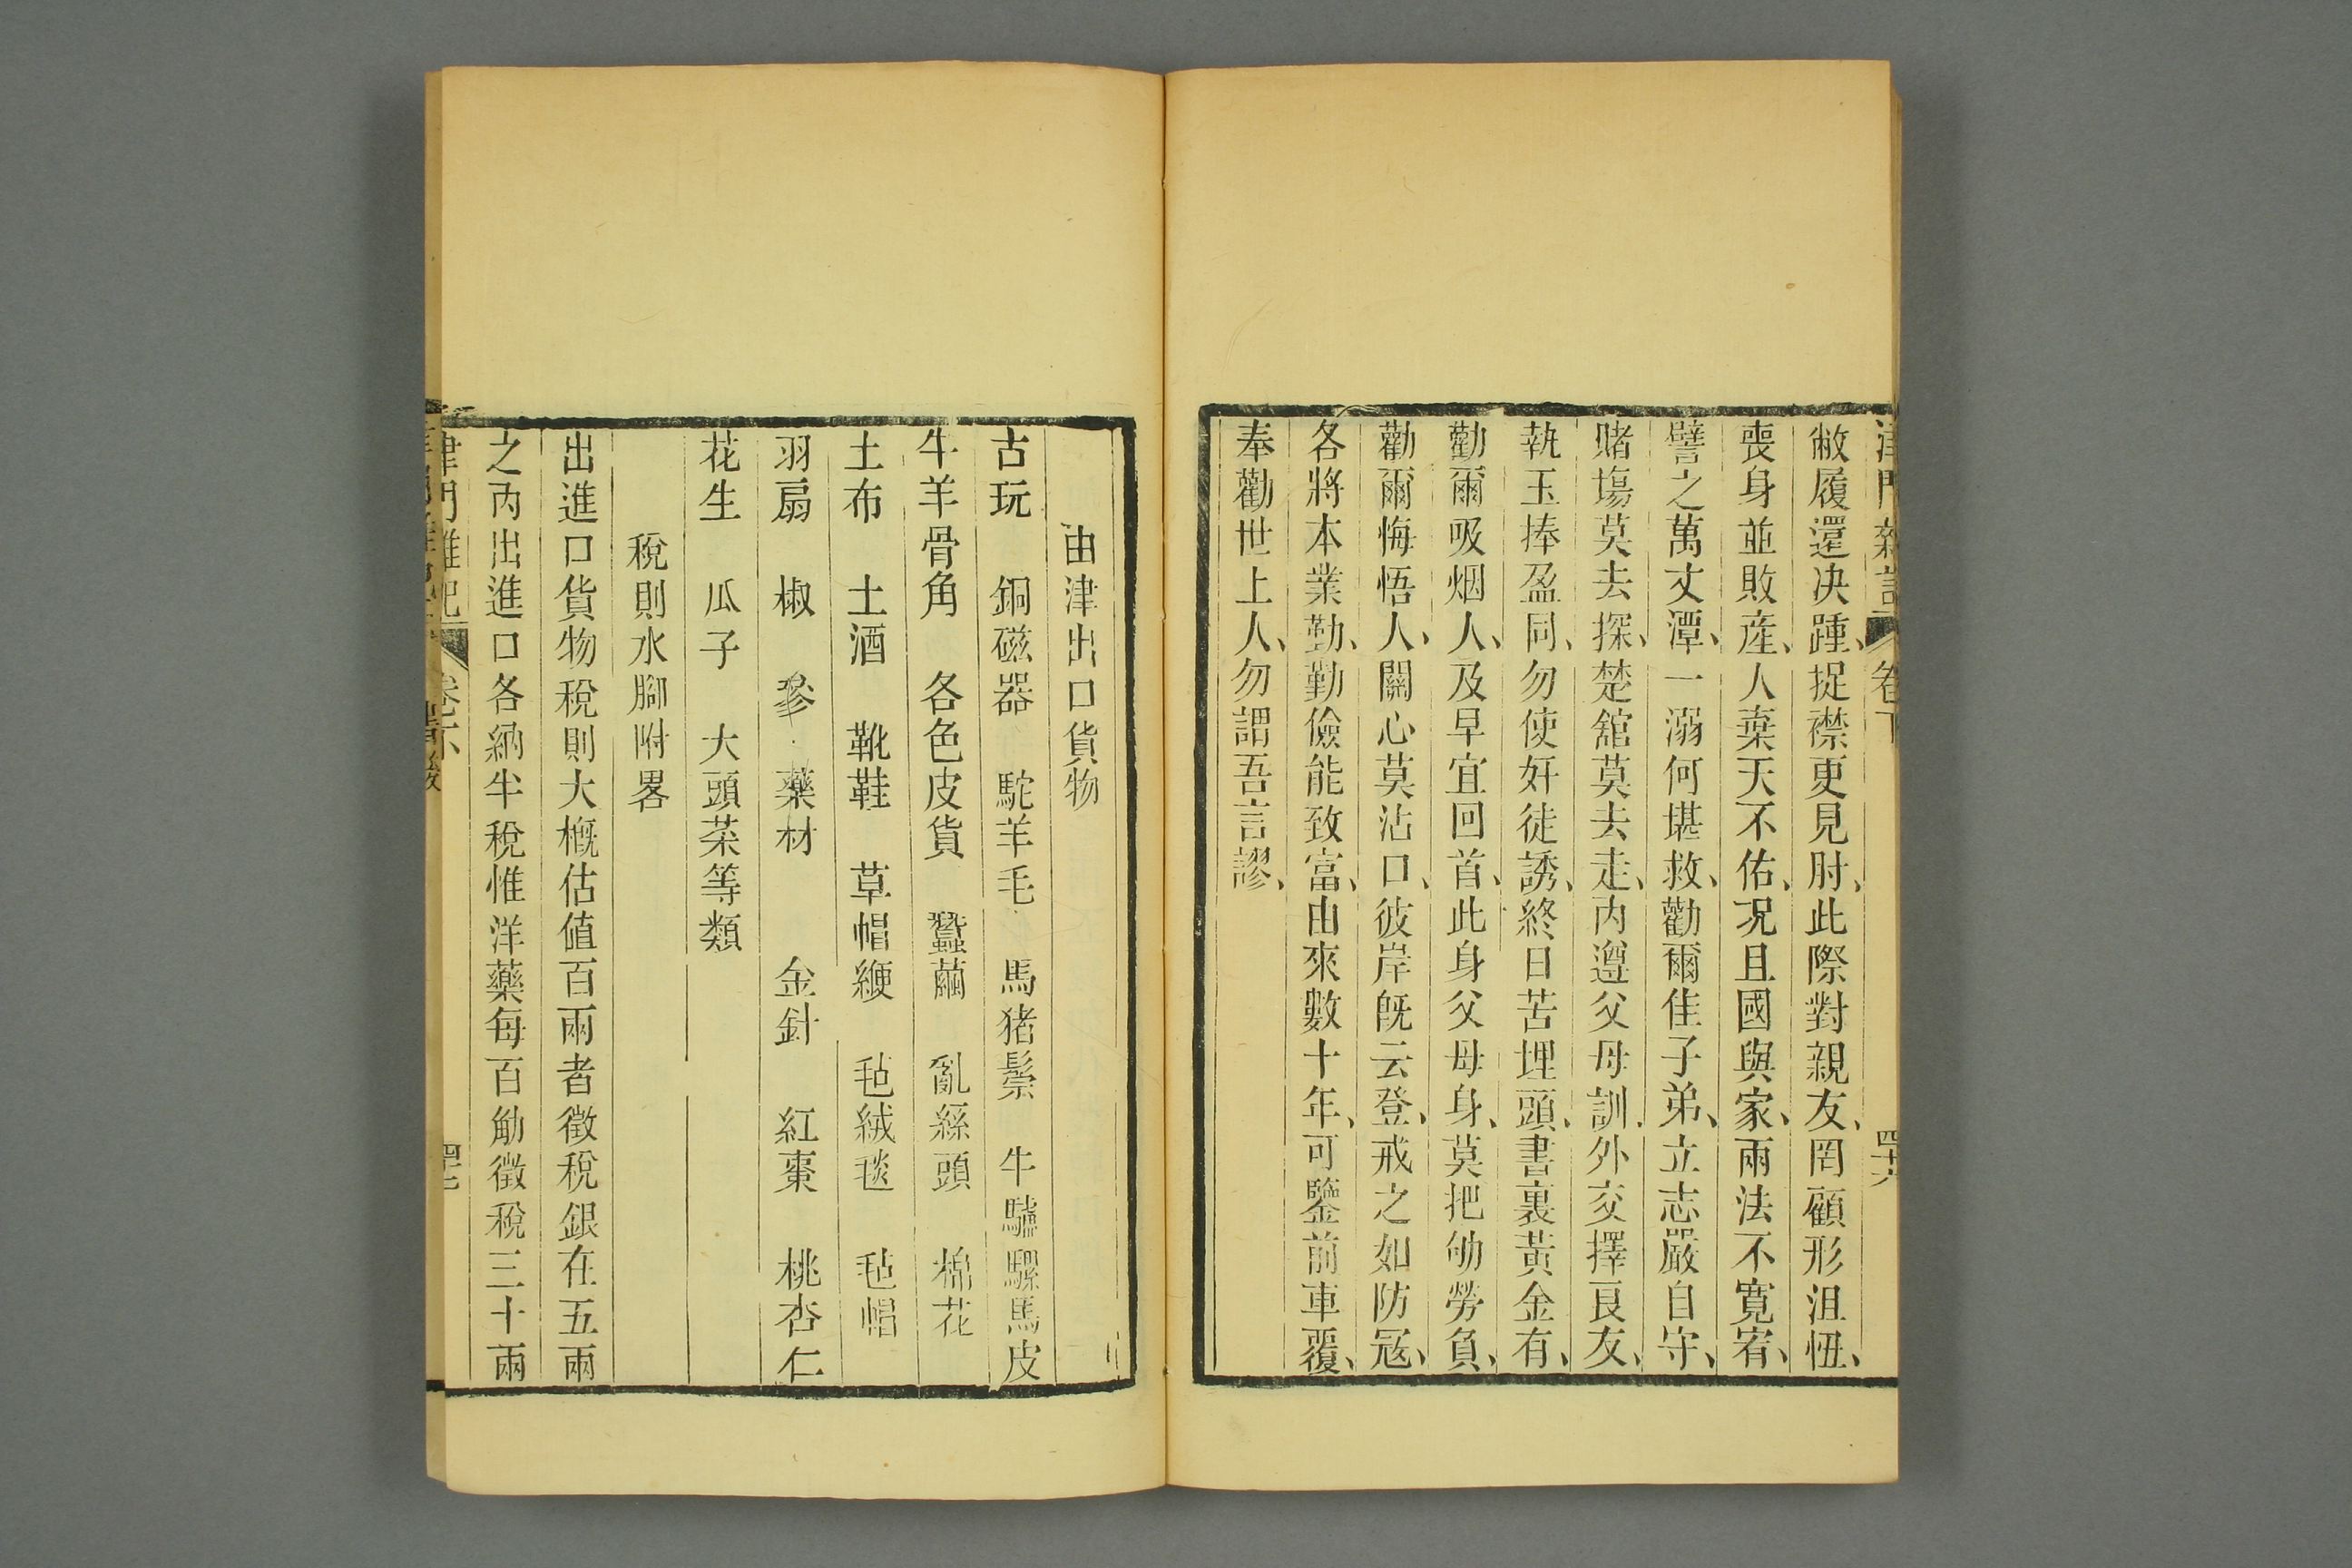 津門雜記 卷下 四十六
敝履還决踵、捉襟更見肘、此際對親友、罔顧形沮忸、
喪身並敗産、人棄天不佑、况且國與家、兩法不寬宥、
譬之萬丈潭、一溺何堪救、勸爾佳子弟、立志嚴自守、
賭塲莫去探、楚舘莫去走、内遵父母訓、外交擇良友、
執玉捧盈同、勿使奸徒誘、終日苦埋頭、書裏黃金有、
勸爾吸烟人、及早宜回首、此身父母身、莫把劬勞負、
勸爾悔悟人、關心莫沾口、彼岸旣云登、戒之如防寇、
各將本業勤、勤儉能致富、由來數十年、可鑒前車覆、
奉勸世上人、勿謂吾言謬、
由津出口貨物
古玩　銅磁器　駝羊毛　馬猪鬃　牛驢騾馬皮
牛羊骨角　各色皮貨　蠶繭　亂絲頭　棉花
土布　土酒　靴鞋　草帽緶　毡絨毯　毡帽
羽扇　椒　參　藥材　金針　紅棗　桃杏仁
花生　瓜子　大頭菜等類
稅則水腳附畧
出進口貨物稅則大槪估値百兩者徵稅銀在五兩
之內出進口各納半稅惟洋藥每百觔徵稅三十兩
津門雜記 卷下 四十七